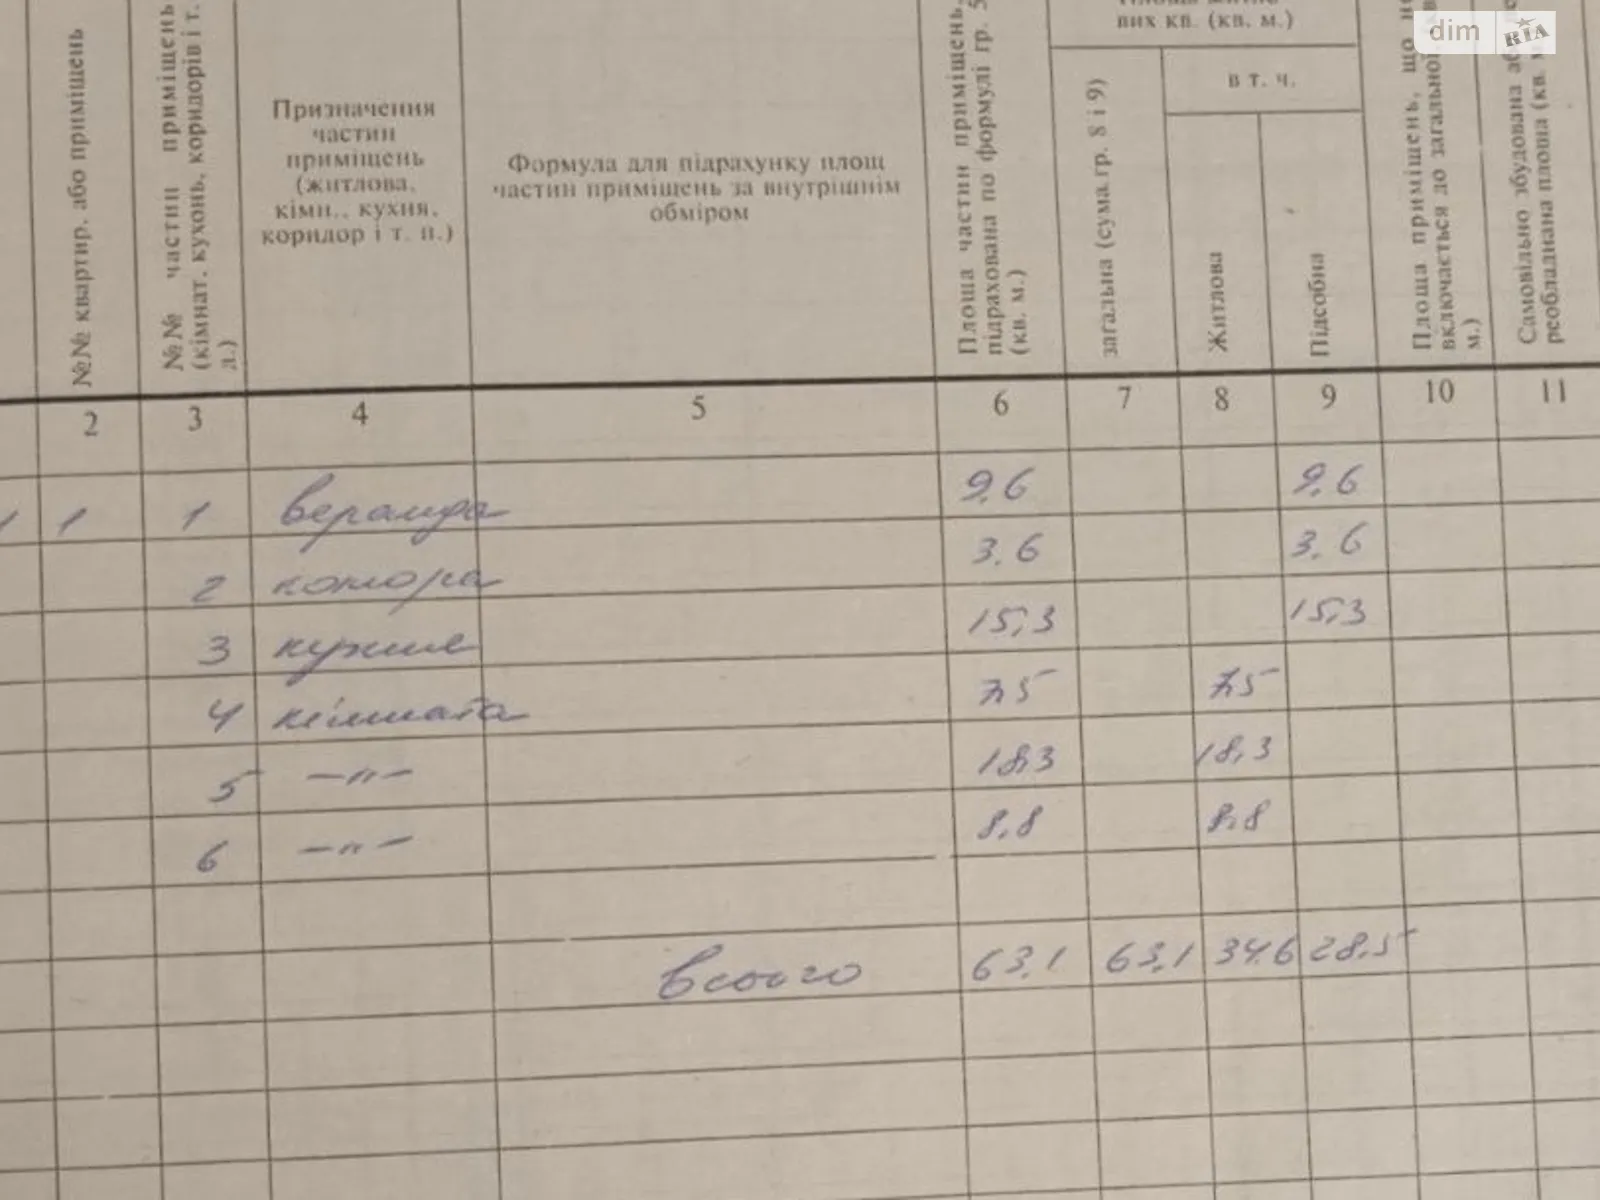 dim RIA
№№ квартир, або приміщень
№№ частин приміщень
(кімнат, кухонь, коридорів і т.
д.)
Призначення
частин
приміщень
(житлова,
кімн., кухня,
коридор і т. п.)
Формула для підрахунку площ
частин приміщень за внутрішнім
обміром
Площа частин приміщень,
підрахована по формулі гр. 5
(кв. м.)
вих кв. (кв. м.)
загальна (сума гр. 8 і 9)
в т. ч.
Житлова
Підсобна
Площа приміщень, що не
включається до загальної
м.)
Самовільно збудована або
реобладнана площа (кв. м
2 3 4 5 6 7 8 9 10 11
1 1 1 веранда 9,6 9,6
2 комора 3.6 3.6
3 кухня 15,3 15,3
4 кімната 7,5 7,5
5 —"— 18,3 18,3
6 —"— 8,8 8,8
Всього 63,1 63,1 34,6 28,5